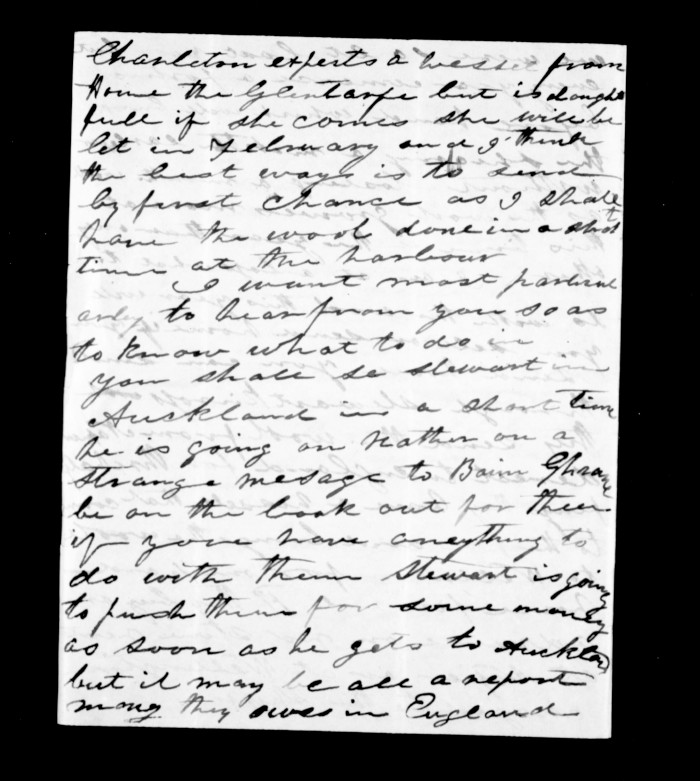 Charleton experts a vessel from
Home the Glentarfe but is dought
full if she comes she will be
let in February and I think
the best ways is to send
by first chance as I shall
have the wool done in a short
time at the harbour
I want most particul
arly to hear from you so as
to know what to do in
you shall se stewart in
Auckland in a short time
he is going on rather on a
strange mesage to Bain Ghrame
be on the look out for them
if youe have aneything to
do with them Stewart is going
to push them for some money
as soon as he gets to Auckland
but it may be all a report
mony they owes in England